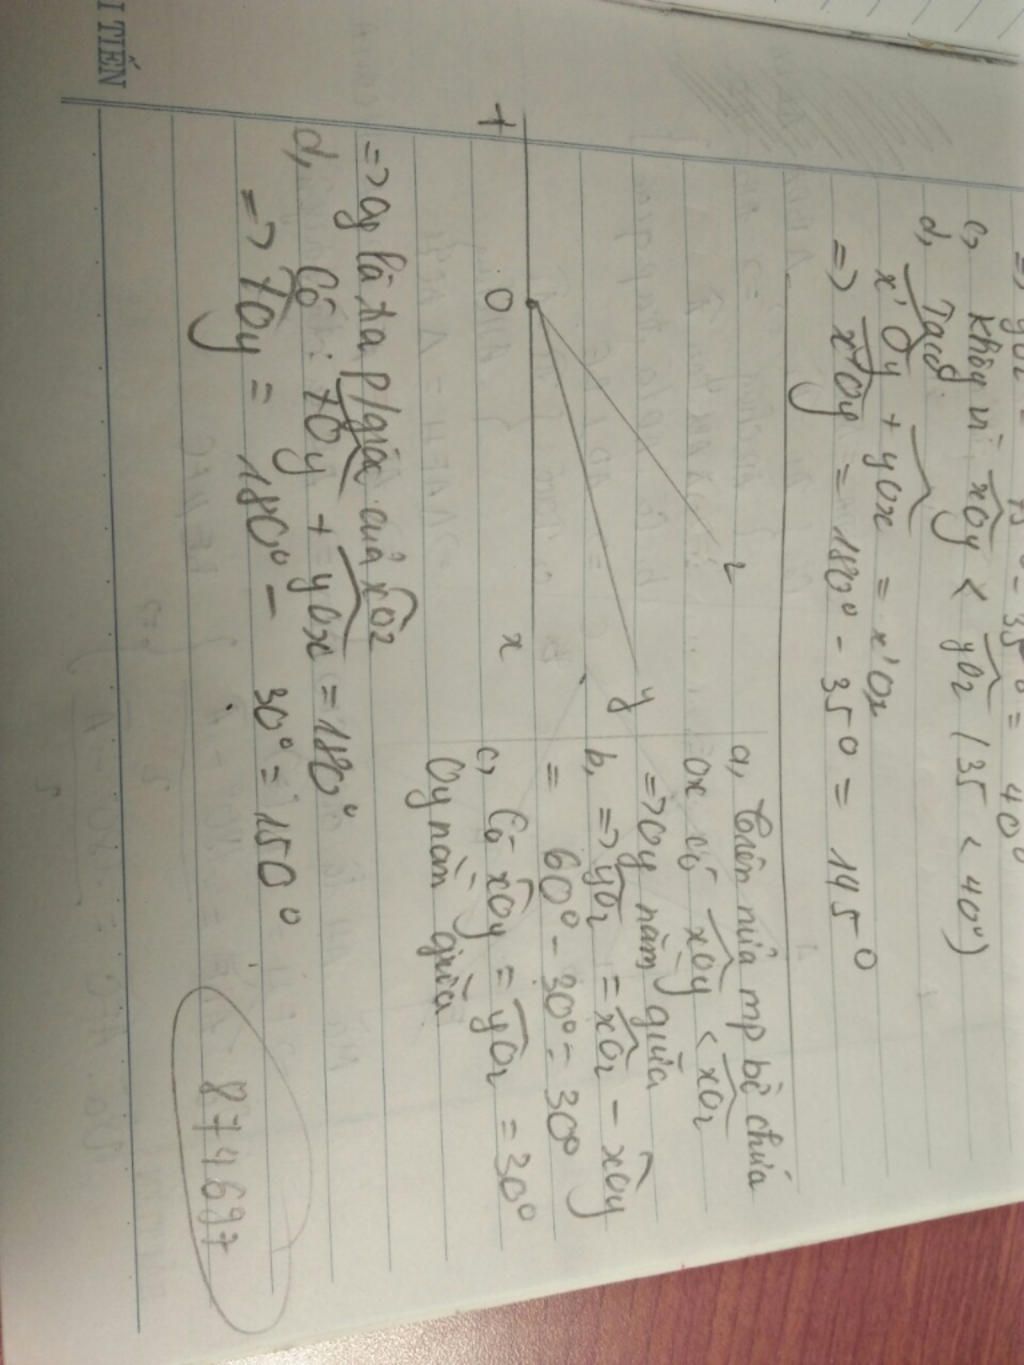 => yOz = 75° - 35° = 40°
c, không vì xOy < yOz (35 < 40°)
d, Ta có
x'Oy + yOx = x'Ox
=> x'Oy = 180° - 35° = 145°
z
y
O
x
t
a, Trên nửa mp bờ chứa
ox có xOy < xOz
=> Oy nằm giữa
b, => yOz = xOz - xOy
= 60° - 30° = 30°
c, Có xOy = yOz = 30°
Oy nằm giữa
=> Oy là tia p/giác của xOz
d, Có: tOy + yOx = 180°
=> tOy = 180° - 30° = 150°
874697
I TIẾN